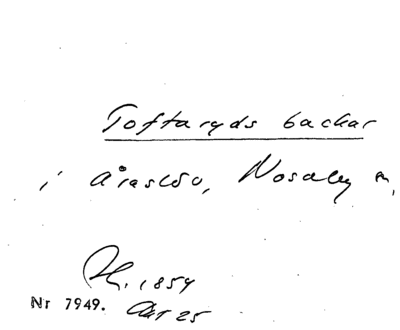 Toftaryds backar
i Åraslöv, Nosaby sn,
Sk. 1854
Nr 7949. Akt 25